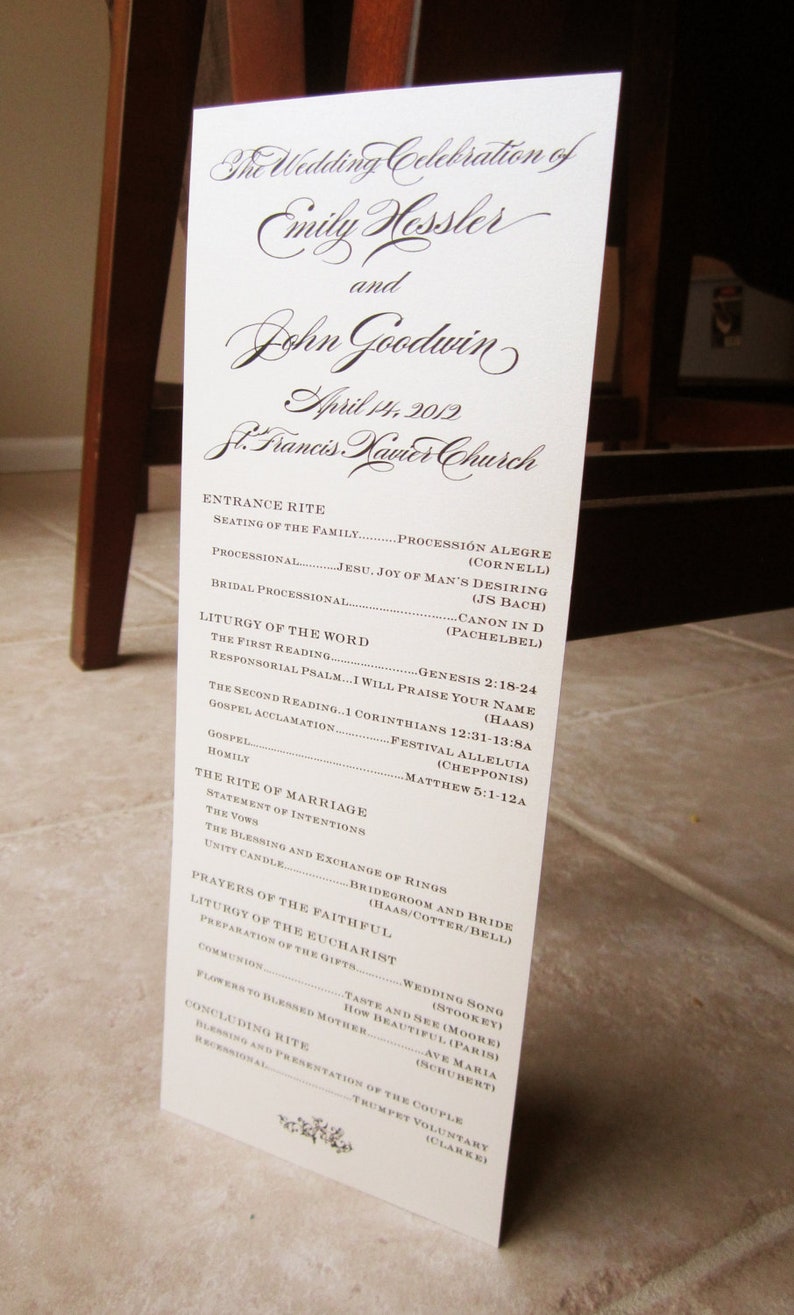 The Wedding Celebration of
Emily Hessler
and
John Goodwin
April 14, 2012
St. Francis Xavier Church
ENTRANCE RITE
SEATING OF THE FAMILY..........PROCESSIÓN ALEGRE
(CORNELL)
PROCESSIONAL..........JESU, JOY OF MAN'S DESIRING
(JS BACH)
BRIDAL PROCESSIONAL............................CANON IN D
(PACHELBEL)
LITURGY OF THE WORD
THE FIRST READING......................GENESIS 2:18-24
RESPONSORIAL PSALM...I WILL PRAISE YOUR NAME
(HAAS)
THE SECOND READING..1 CORINTHIANS 12:31-13:8A
GOSPEL ACCLAMATION..............FESTIVAL ALLELUIA
(CHEPPONIS)
GOSPEL........................................MATTHEW 5:1-12A
HOMILY
THE RITE OF MARRIAGE
STATEMENT OF INTENTIONS
THE VOWS
THE BLESSING AND EXCHANGE OF RINGS
UNITY CANDLE.................BRIDEGROOM AND BRIDE
(HAAS/COTTER/BELL)
PRAYERS OF THE FAITHFUL
LITURGY OF THE EUCHARIST
PREPARATION OF THE GIFTS............WEDDING SONG
(STOOKEY)
COMMUNION.....................TASTE AND SEE (MOORE)
HOW BEAUTIFUL (PARIS)
FLOWERS TO BLESSED MOTHER...............AVE MARIA
(SCHUBERT)
CONCLUDING RITE
BLESSING AND PRESENTATION OF THE COUPLE
RECESSIONAL......................TRUMPET VOLUNTARY
(CLARKE)